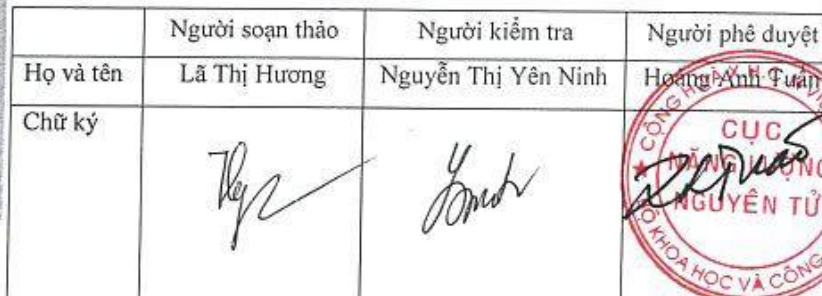 Người soạn thảo Người kiểm tra Người phê duyệt
Họ và tên Lã Thị Hương Nguyễn Thị Yên Ninh Hoàng Anh Tuấn
Chữ ký
CỘNG HÒA X.H.C.N VIỆ
CỤC
NĂNG LƯỢNG
NGUYÊN TỬ
BỘ KHOA HỌC VÀ CÔNG